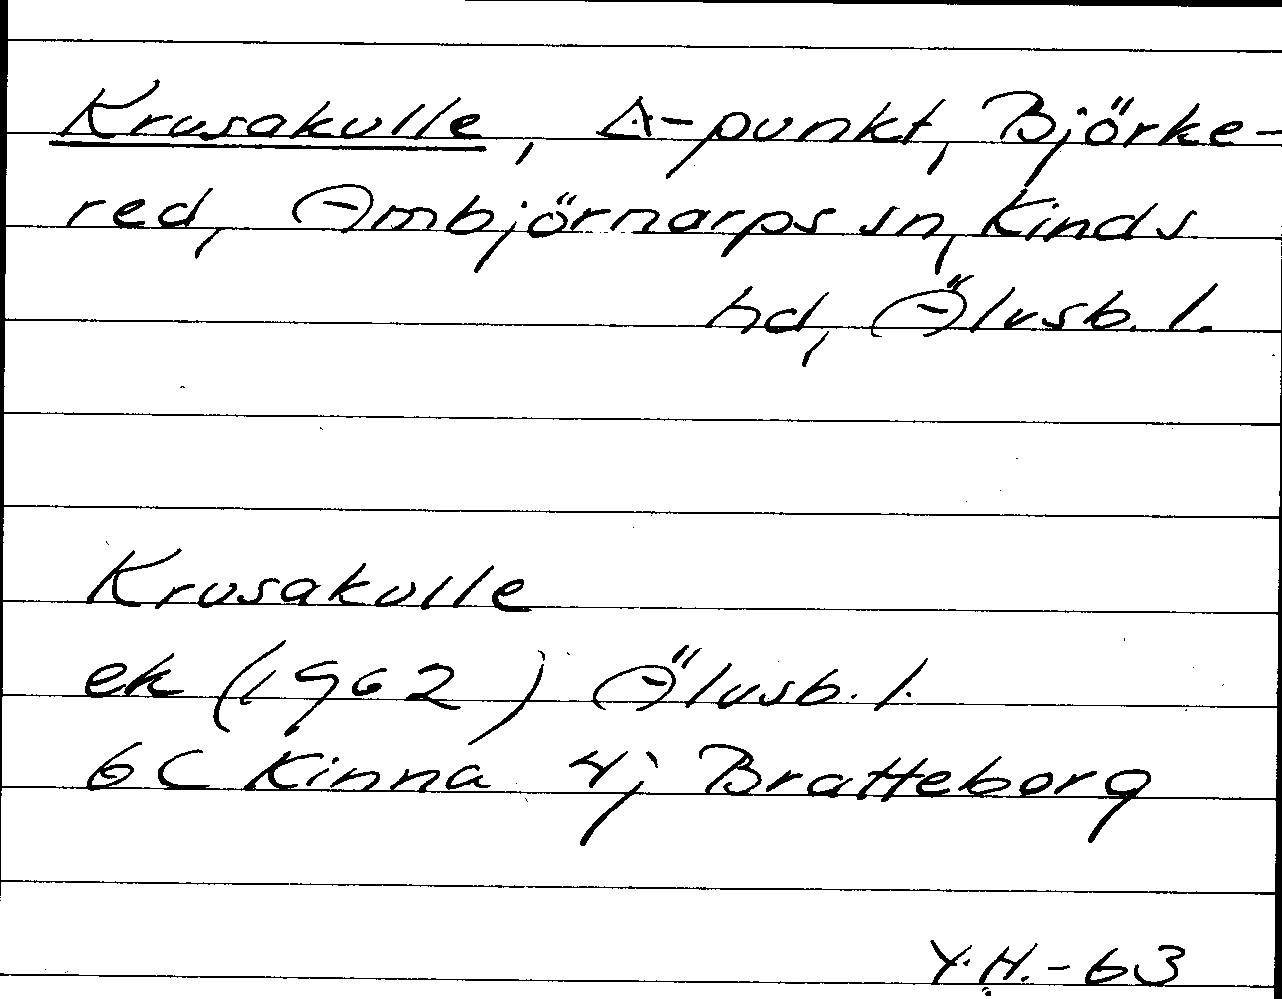 Krusakulle, ∆-punkt, Björke-
red, Ambjörnarps sn, Kinds
hd, Älvsb. l.
Krusakulle
ek (1962) Älvsb. l.
6C Kinna 4j Bratteborg
Y.H.-63